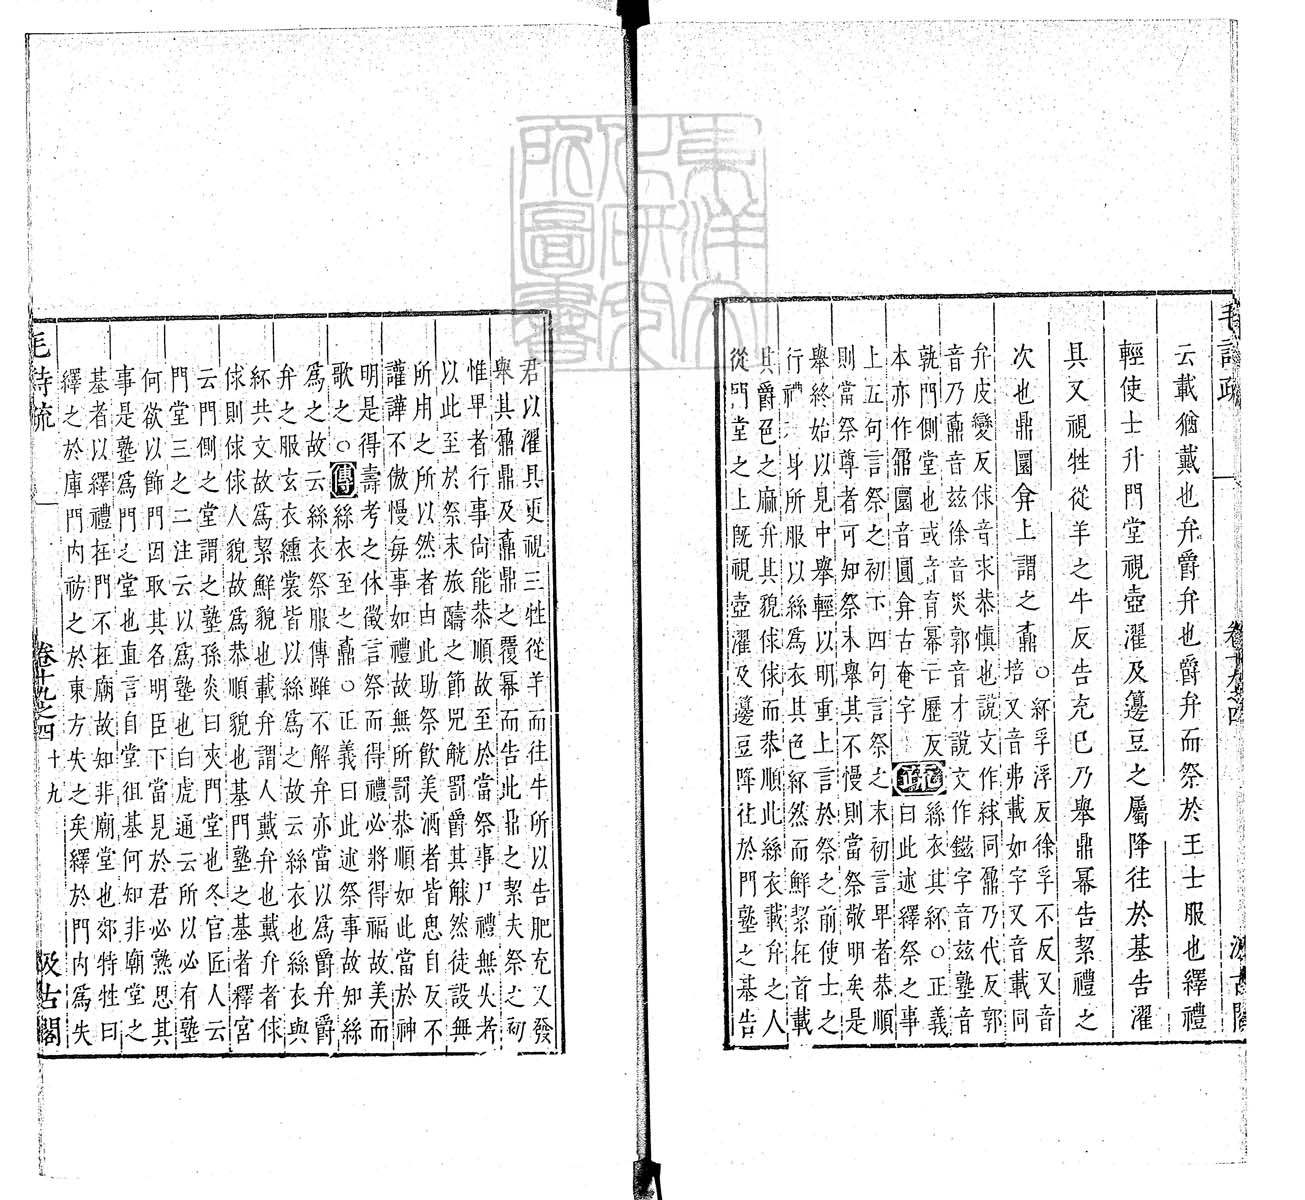 毛詩疏
卷十九之四
汲古閣
云載猶戴也弁爵弁也爵弁而祭於王士服也繹禮
輕使士升門堂視壺濯及籩豆之屬降往於基告濯
具又視牲從羊之牛反告充已乃舉鼎冪告絜禮之
次也鼎圜弇上謂之鼒
○紑孚浮反徐孚不反又音
培又音弗載如字又音載同
弁皮變反俅音求恭慎也說文作絿同鼐乃代反郭
音乃鼒音玆徐音災郭音才說文作鎡字音玆塾音
孰門側堂也或音育冪亡歷反
本亦作鼏圜音圓弇古奄字
絲衣其紑○正義
疏
曰此述繹祭之事
上五句言祭之初下四句言祭之末初言卑者恭順
則當祭尊者可知祭末舉其不慢則當祭敬明矣是
舉終始以見中舉輕以明重上言於祭之前使士之
行禮在身所服以絲爲衣其色紑然而鮮絜在首載
其爵色之麻弁其貌俅俅而恭順此絲衣載弁之人
從門堂之上旣視壺濯及籩豆降往於門塾之基告
君以濯具更視三牲從羊而往牛所以告肥充又發
舉其鼐鼎及鼒鼎之覆冪而告此鼎之絜夫祭之初
惟卑者行事尙能恭順故至於當祭事尸禮無失者
以此至於祭末旅酬之節兕觥罰爵其觩然徒設無
所用之所以然者由此助祭飲美酒者皆思自反不
讙譁不傲慢每事如禮故無所罰恭順如此當於神
明是得壽考之休徵言祭而得禮必將得福故美而
歌之○傳絲衣至之鼒○正義曰此述祭事故知絲
爲之故云絲衣祭服傳雖不解弁亦當以爲爵弁爵
弁之服玄衣纁裳皆以絲爲之故云絲衣也絲衣與
紑共文故爲絜鮮貌也載弁謂人戴弁也戴弁者俅
俅則俅俅人貌故爲恭順貌也基門塾之基者釋宮
云門側之堂謂之塾孫炎曰夾門堂也冬官匠人云
門堂三之二注云以爲塾也白虎通云所以必有塾
何欲以飾門因取其名明臣下當見於君必熟思其
事是塾爲門之堂也直言自堂徂基何知非廟堂之
基者以繹禮在門不在廟故知非廟堂也郊特牲曰
繹之於庫門內祊之於東方失之矣繹於門內爲失
毛詩疏
卷十九之四
十九
汲古閣